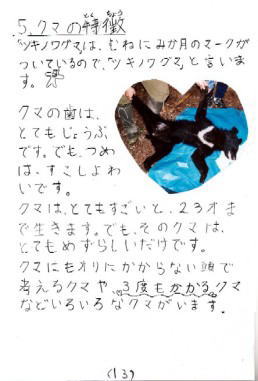 5.クマの特徴
とくちょう
「ツキノワグマ」は、むねにみか月のマークが
ついているので、「ツキノワグマ」と言いま
す。
クマの歯は、
とてもじょうぶ
です。でも、つめ
は、すこしよわ
いです。
クマは、とてもすごいと、23才ま
で生きます。でも、そのクマは、
とてもめずらしいだけです。
クマにもオリにかからない頭で
考えるクマや、3度もかかるクマ
などいろいろなクマがいます。
(13)